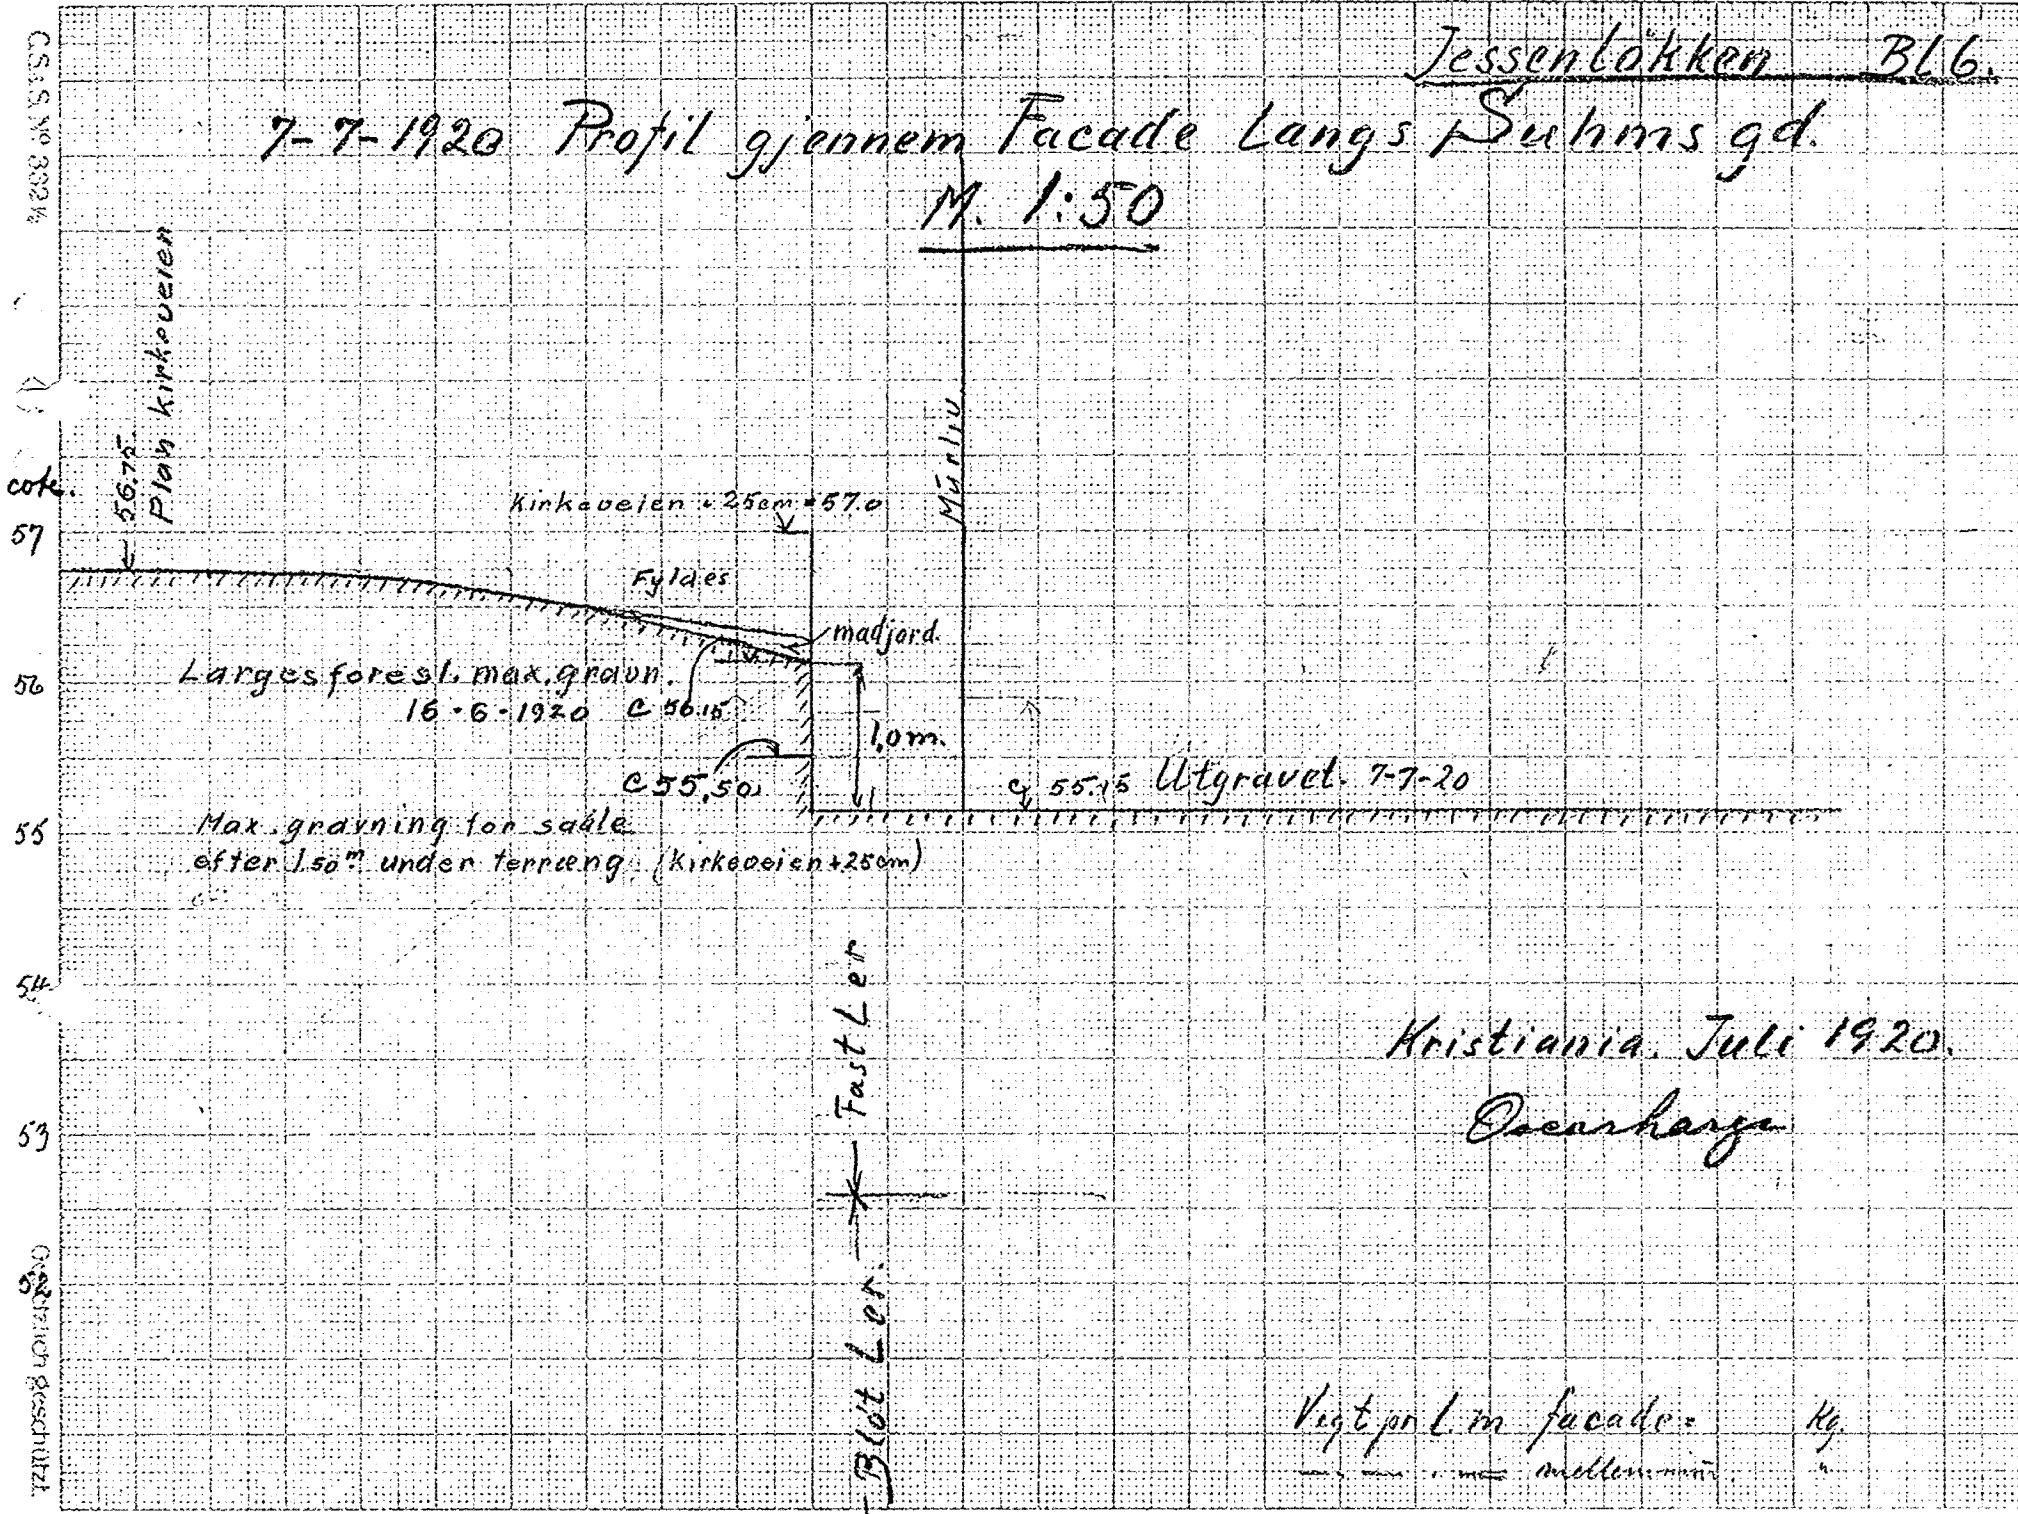 Jessenløkken Bl 6.
7-7-1920 Profil gjennem Facade Langs Suhms gd.
M. 1:50
C.S.&S. Nº 392½
56.75.
Plan kirkeveien
cote.
57
56
55
54
53
52
Kirkeveien + 25cm = 57.0
Murliv
Fyldes
madjord.
Larges forest. max. gravn.
16-6-1920 C 56.15
1,0 m.
C 55,50
C 55.15 Utgravet. 7-7-20
Max. gravning for saale
efter 1.50 m under terræng. (Kirkeveien +25cm)
Fast Ler
Bløt Ler.
Kristiania. Juli 1920.
Vegt pr l. m facade = Kg.
"
geschützt.